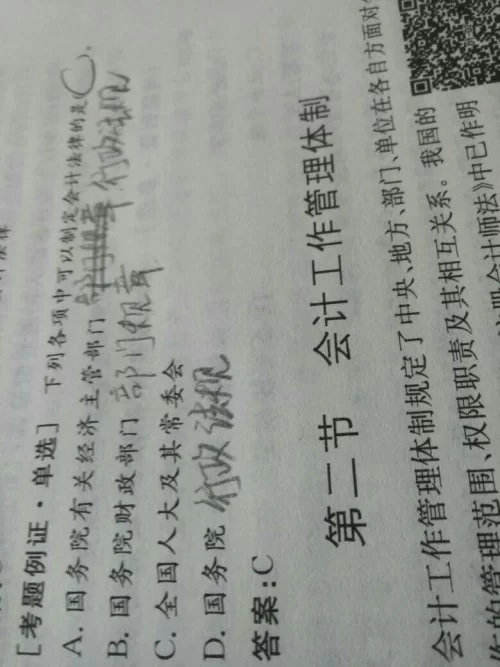 [考题例证·单选] 下列各项中可以制定会计法律的是(C).
A. 国务院有关经济主管部门 行政法规
B. 国务院财政部门 部门规章
C. 全国人大及其常委会
D. 国务院 行政法规
答案:C
第二节 会计工作管理体制
会计工作管理体制规定了中央、地方、部门、单位在各自方面对
的管理范围、权限职责及其相互关系。我国的
会计师法》中已作明